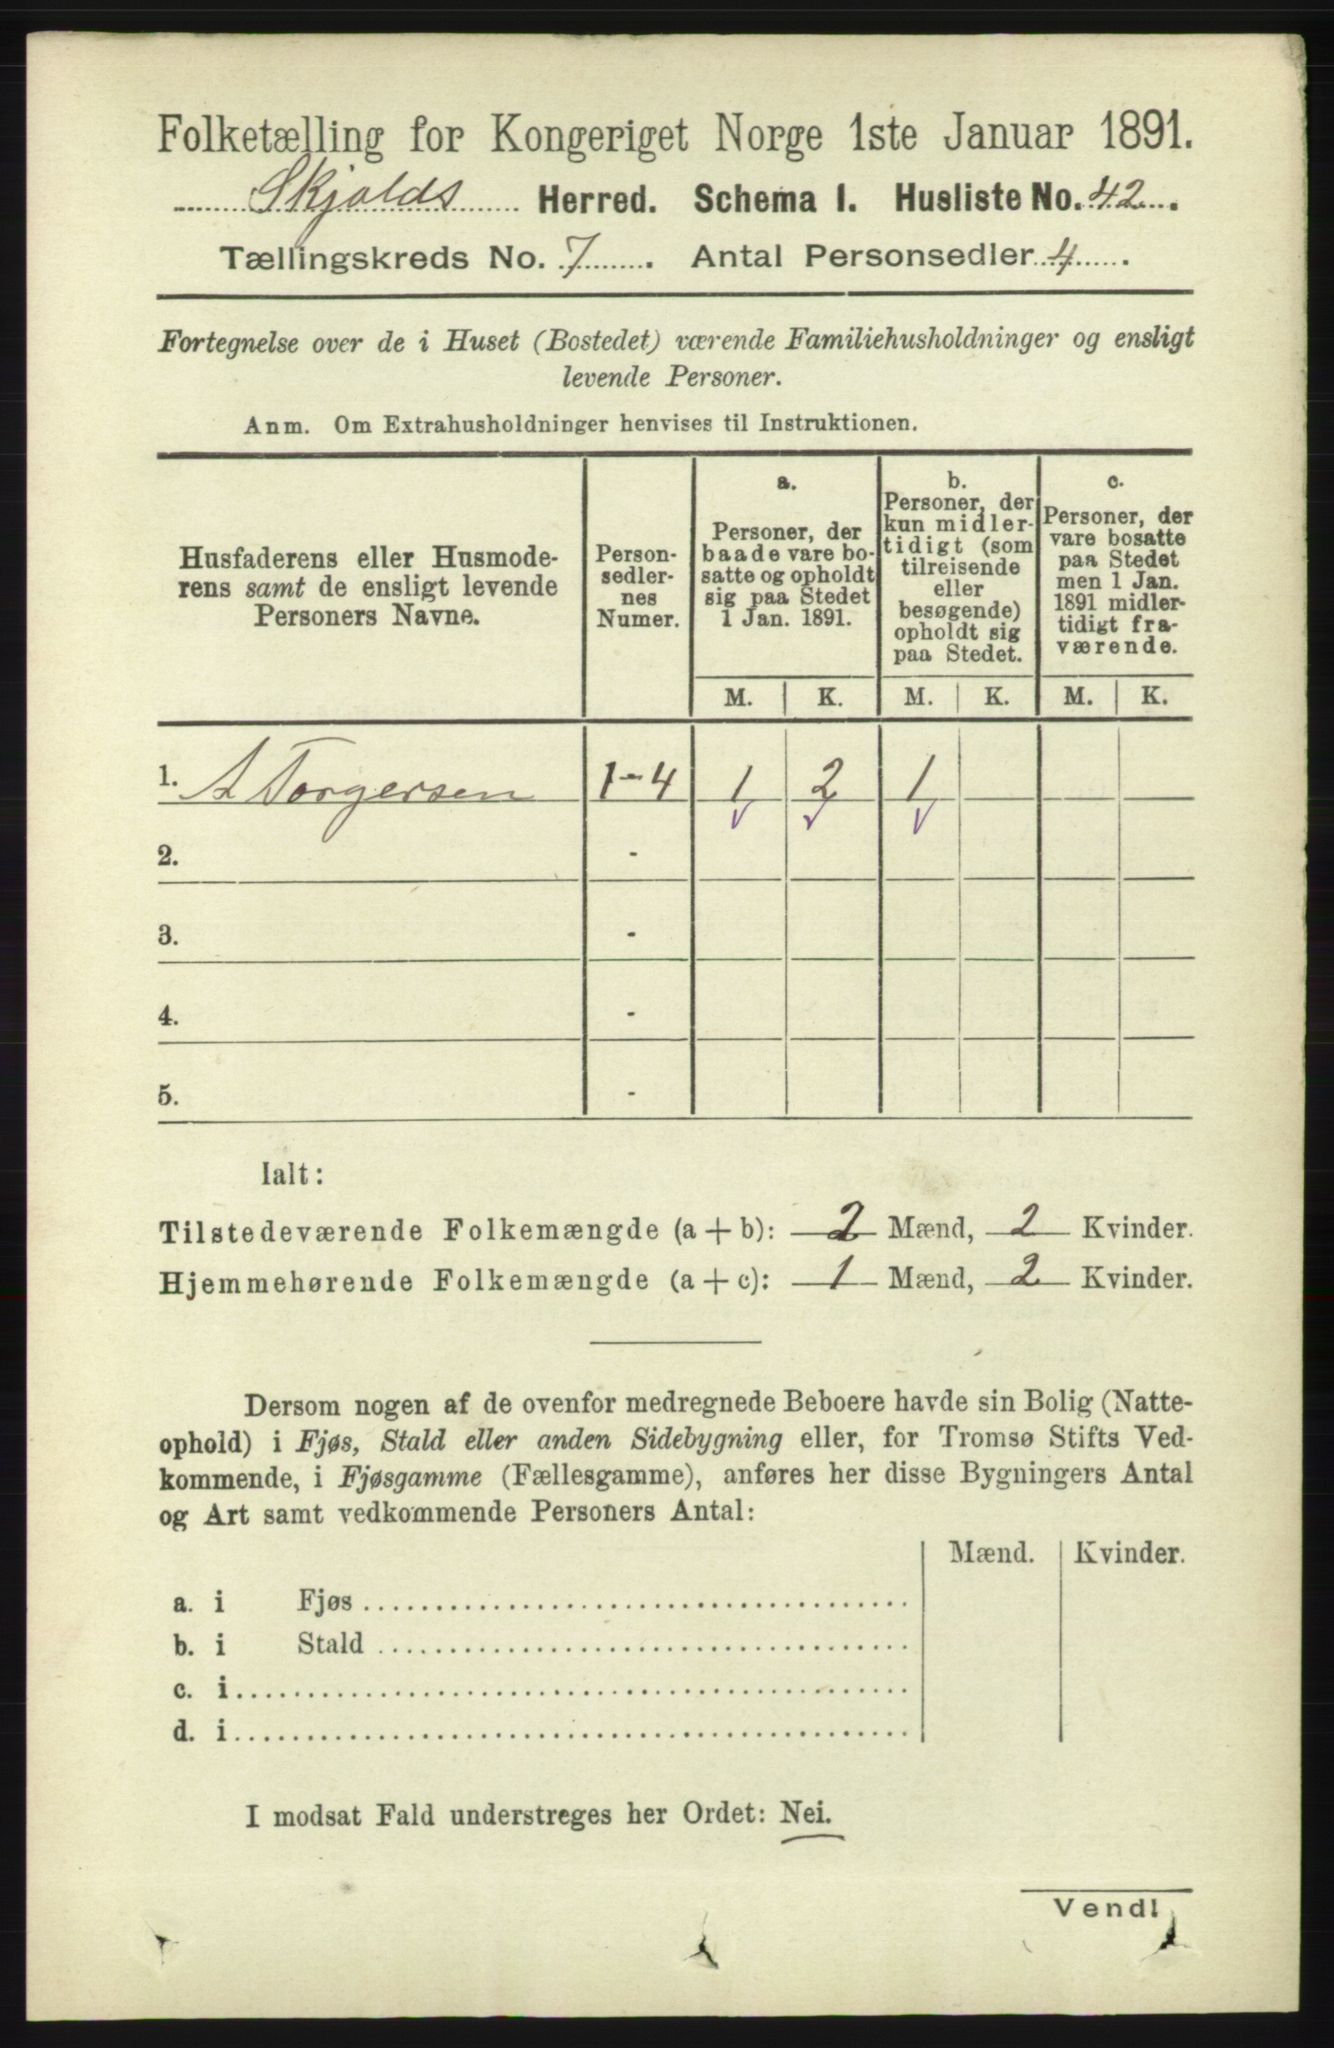 Folketælling for Kongeriget Norge 1ste Januar 1891.
Skjolds Herred. Schema I. Husliste No. 42.
Tællingskreds No. 7. Antal Personsedler 4.
Fortegnelse over de i Huset (Bostedet) værende Familiehusholdninger og ensligt
levende Personer.
Anm. Om Extrahusholdninger henvises til Instruktionen.
Husfaderens eller Husmode-
rens samt de ensligt levende
Personers Navne.
Person-
sedler-
nes
Numer.
a.
Personer, der
baade vare bo-
satte og opholdt
sig paa Stedet
1 Jan. 1891.
b.
Personer, der
kun midler-
tidigt (som
tilreisende
eller
besøgende)
opholdt sig
paa Stedet.
c.
Personer, der
vare bosatte
paa Stedet
men 1 Jan.
1891 midler-
tidigt fra-
værende.
M. K. M. K. M. K.
1. A Torgersen 1-4 1 2 1
2. -
3. -
4. -
5. -
Ialt:
Tilstedeværende Folkemængde (a + b): 2 Mænd, 2 Kvinder.
Hjemmehørende Folkemængde (a + c): 1 Mænd, 2 Kvinder.
Dersom nogen af de ovenfor medregnede Beboere havde sin Bolig (Natte-
ophold) i Fjøs, Stald eller anden Sidebygning eller, for Tromsø Stifts Ved-
kommende, i Fjøsgamme (Fællesgamme), anføres her disse Bygningers Antal
og Art samt vedkommende Personers Antal:
Mænd. Kvinder.
a. i Fjøs
b. i Stald
c. i
d. i
I modsat Fald understreges her Ordet: Nei.
Vend!